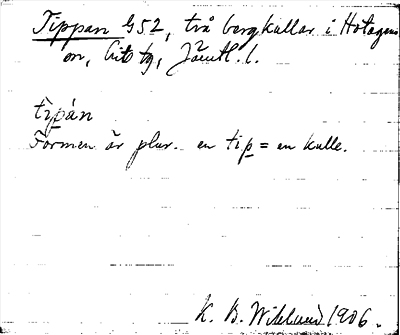 Tippan G52, två bergkullar i Hotagens
sn, Jämtl. l.
tipan
Formen är plur. en tip = en kulle.
K. B. Wiklund 1906.